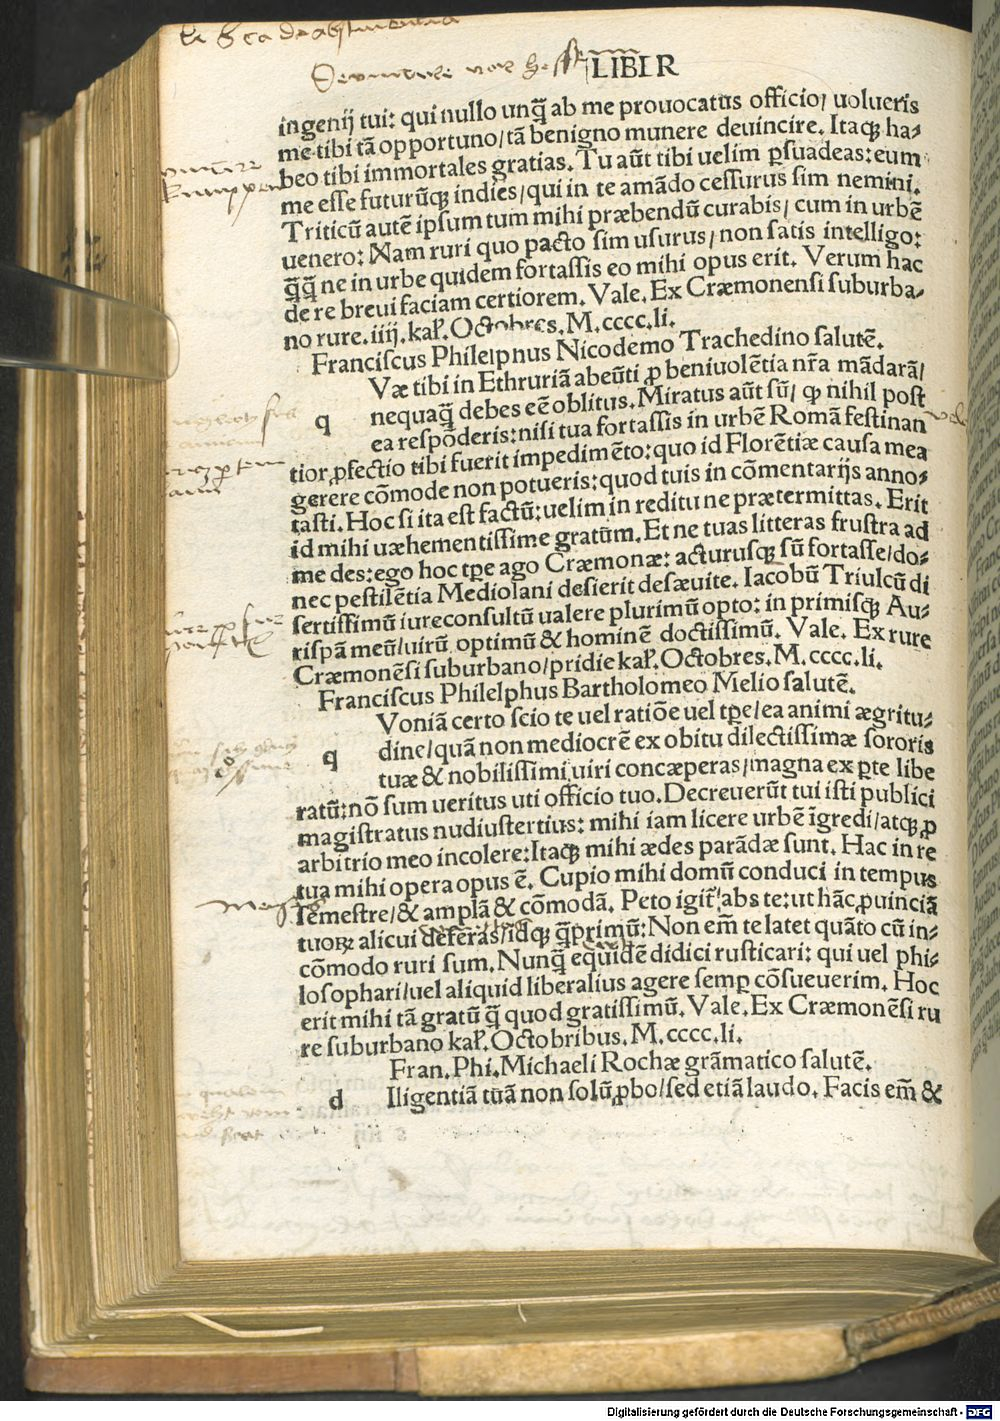 LIBER
ingenij tui: qui nullo unq̃ ab me prouocatus officio/ uolueris
me tibi tã opportuno/tã benigno munere deuincire. Itaqꝫ ha⸗
beo tibi immortales gratias. Tu aũt tibi uelim ꝑsuadeas: eum
me esse futurũqꝫ indies/qui in te amãdo cessurus sim nemini.
Triticũ autẽ ipsum tum mihi præbendũ curabis/ cum in urbẽ
uenero: Nam ruri quo pacto sim usurus/non satis intelligo:
q̃q̃ ne in urbe quidem fortassis eo mihi opus erit. Verum hac
de re breui faciam certiorem. Vale. Ex Cræmonensi suburba⸗
no rure. iiij. kaƚ. Octobres. M.cccc.li.
Franciscus Philelphus Nicodemo Trachedino salutẽ.
Væ tibi in Ethruriã abeũti ꝓ beniuolẽtia nr̃a mãdarã/
q nequaq̃ debes eẽ oblitus. Miratus aũt sũ/ ꝙ nihil post
ea respõderis: nisi tua fortassis in urbẽ Romã festinan
tior ꝓfectio tibi fuerit impedimẽto: quo id Florẽtiæ causa mea
gerere cõmode non potueris: quod tuis in cõmentarijs anno⸗
tasti. Hoc si ita est factũ: uelim in reditu ne prætermittas. Erit
id mihi uæhementissime gratũm. Et ne tuas litteras frustra ad
me des: ego hoc tꝑe ago Cræmonæ: acturusqꝫ sũ fortasse/do⸗
nec pestilẽtia Mediolani desierit desæuite. Iacobũ Triulcũ di
sertissimũ iureconsultũ ualere plurimũ opto: in primisqꝫ Au⸗
rispã meũ/uirũ optimũ & hominẽ doctissimũ. Vale. Ex rure
Cræmonẽsi suburbano/pridie kaƚ. Octobres. M.cccc.li.
Franciscus Philelphus Bartholomeo Melio salutẽ.
Voniã certo scio te uel ratiõe uel tꝑe/ea animi ægritu⸗
q dine/quã non mediocrẽ ex obitu dilectissimæ sororis
tuæ & nobilissimi uiri concæperas/magna ex ꝑte libe
ratũ: nõ sum ueritus uti officio tuo. Decreuerũt tui isti publici
magistratus nudiustertius: mihi iam licere urbẽ ĩgredi/atqꝫ ꝓ
arbitrio meo incolere: Itaqꝫ mihi ædes parãdæ sunt. Hac in re
tua mihi opera opus ẽ. Cupio mihi domũ conduci in tempus
semestre/& amplã & cõmodã. Peto igit̃ abs te: ut hãc ꝓuinciã
tuoꝝ alicui deferas/idqꝫ q̃primũ: Non em̃ te latet quãto cũ in⸗
cõmodo ruri sum. Nunq̃ equidẽ didici rusticari: qui uel phi⸗
losophari/uel aliquid liberalius agere semꝑ cõsueuerim. Hoc
erit mihi tã gratũ q̃ quod gratissimũ. Vale. Ex Cræmonẽsi ru
re suburbano kaƚ. Octobribus. M.cccc.li.
Fran. Phi. Michaeli Rochæ grãmatico salutẽ.
d Iligentiã tuã non solũ ꝓbo/sed etiã laudo. Facis em̃ &
Digitalisierung gefördert durch die Deutsche Forschungsgemeinschaft - DFG